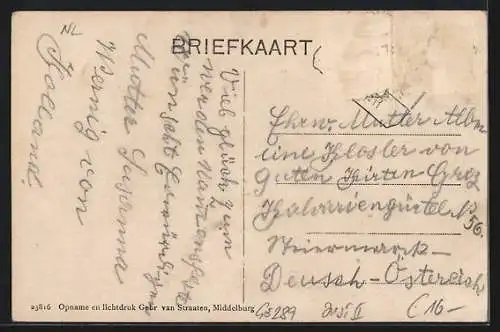 NL
BRIEFKAART
Viel glück zum
werden Namensfeste
wünscht Ehrwürdigen
Mutter Susanna
Wernig von
Holland.
Ehrw. Mutter
eine Kloster von
Guten Hirten Graz
Kalvariengürtel N 56.
Steiermark–
Deusch-Östereich
23816 Opname en lichtdruk Gebr van Straaten, Middelburg
Gs289
€16–